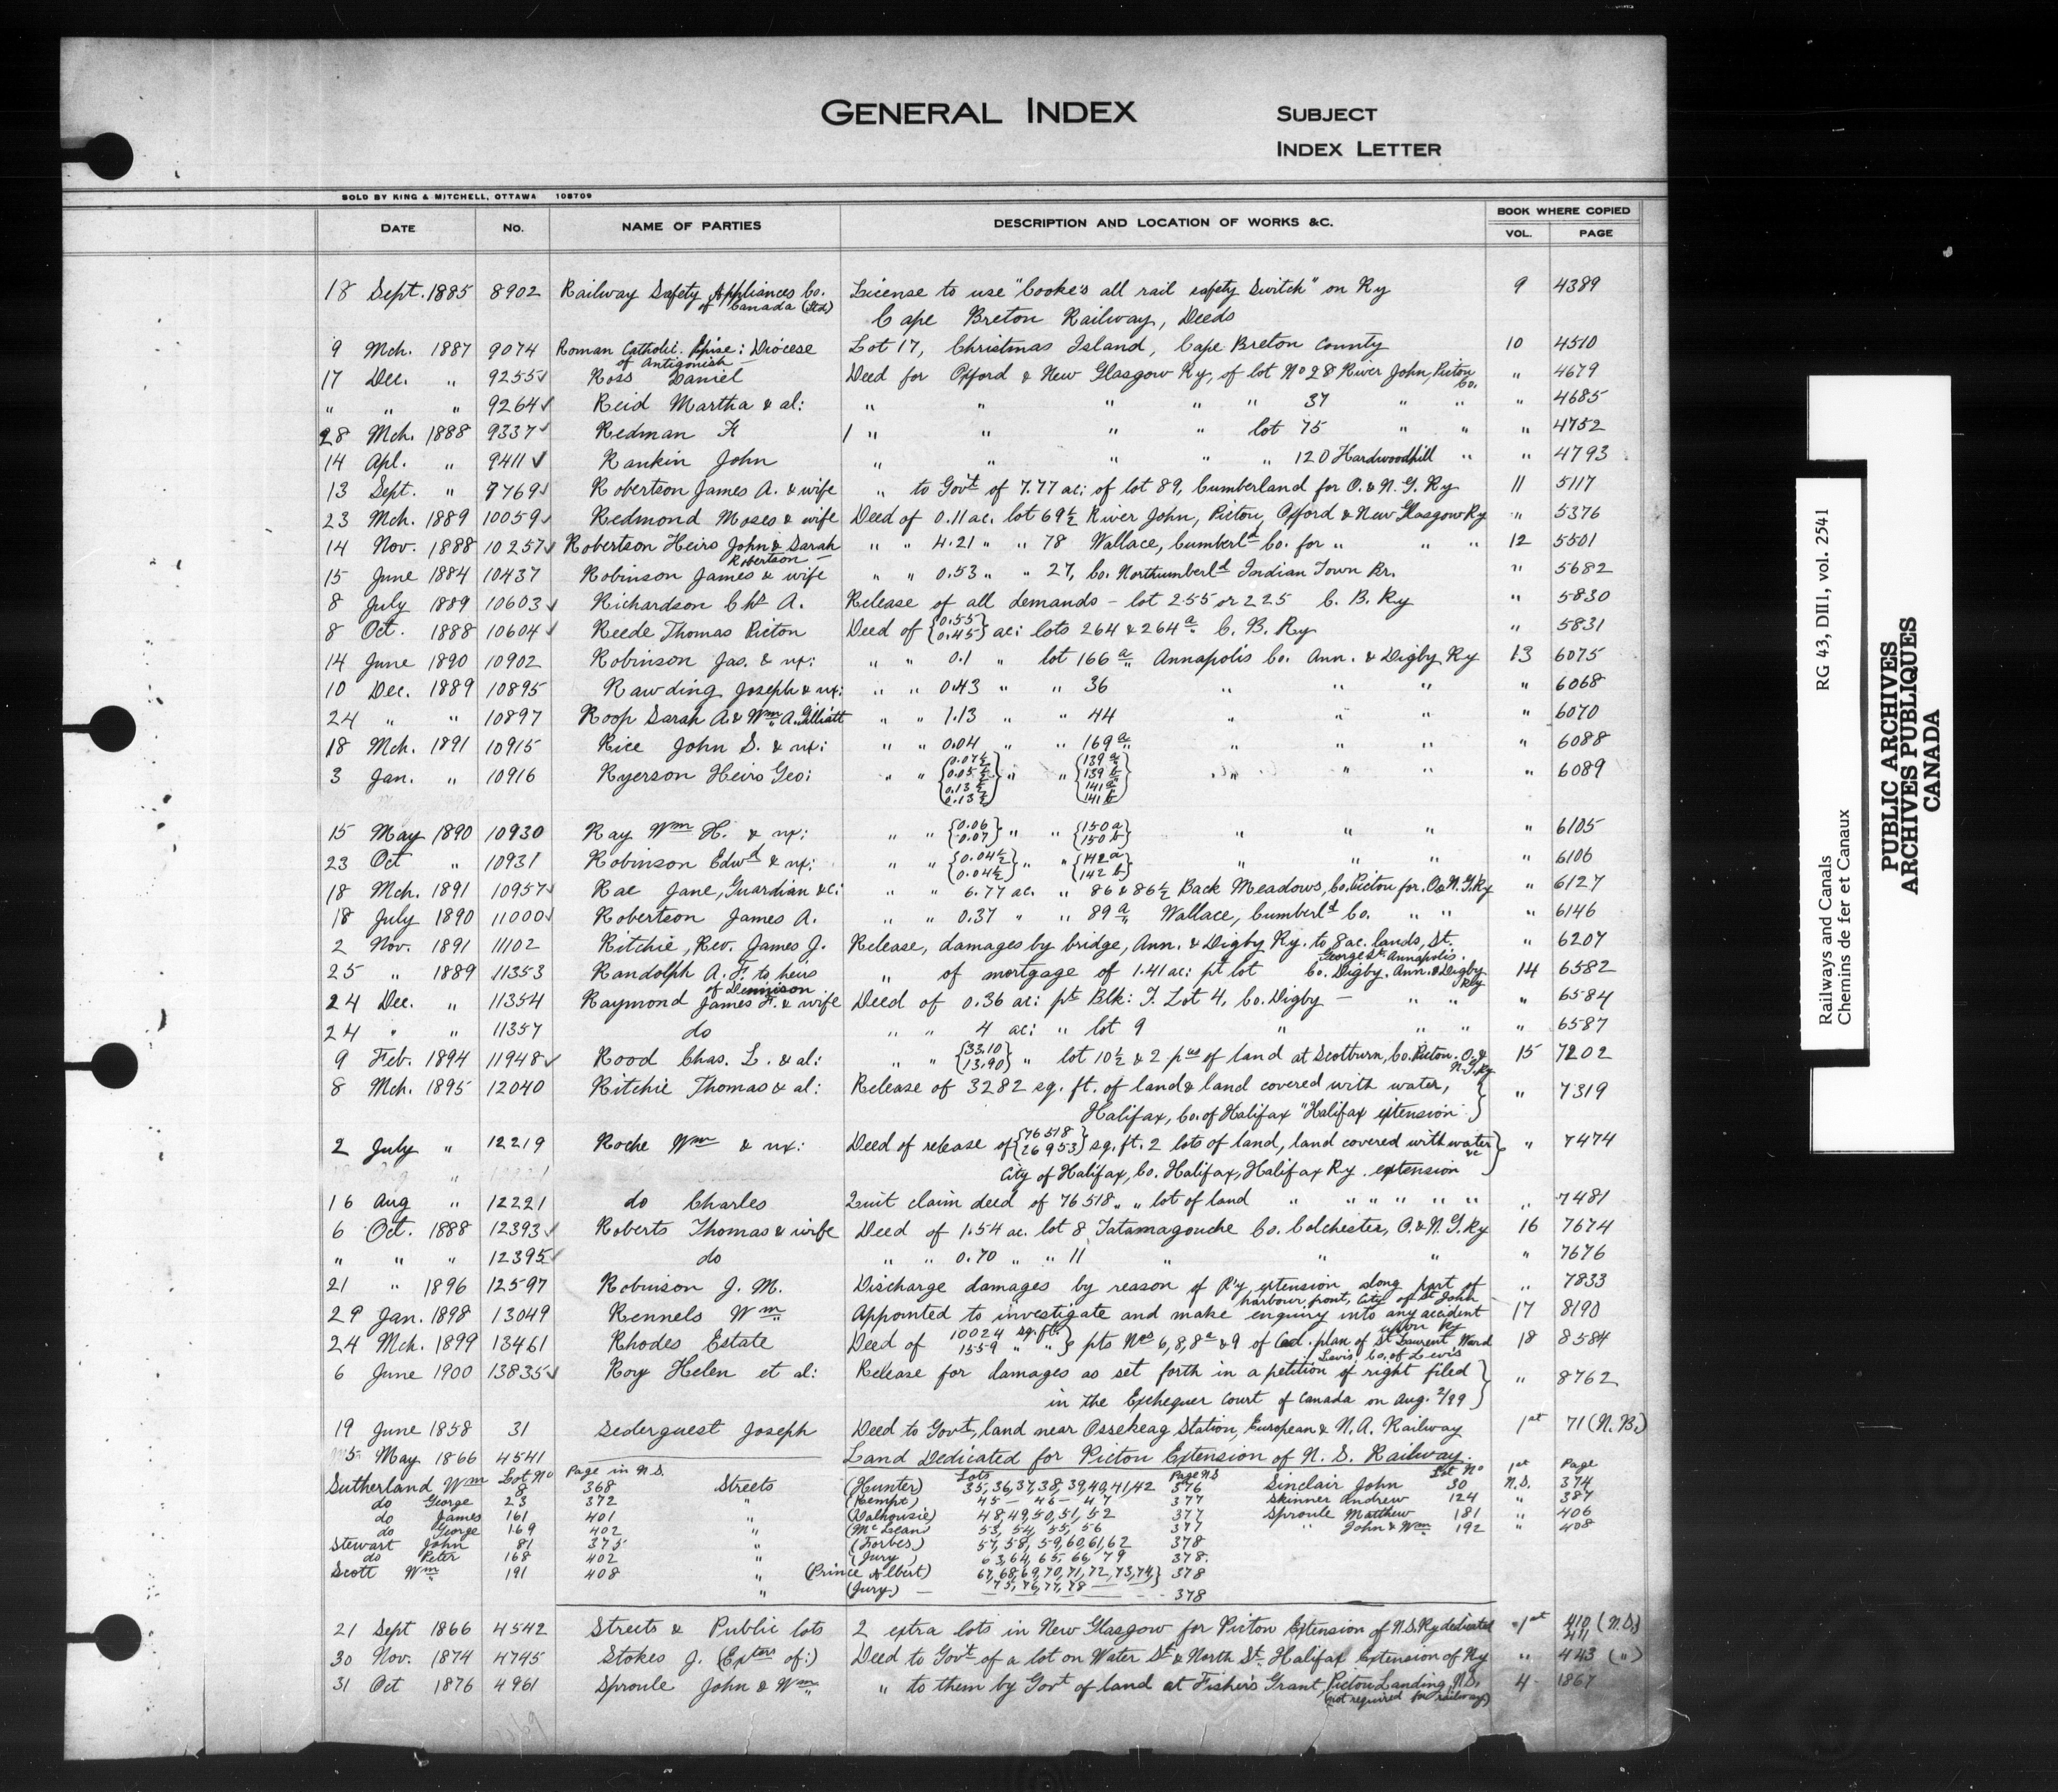 GENERAL INDEX
SUBJECT
INDEX LETTER
SOLD BY KING & MITCHELL, OTTAWA 108709
DATE No. NAME OF PARTIES DESCRIPTION AND LOCATION OF WORKS &C. BOOK WHERE COPIED
VOL. PAGE
18 Sept. 1885 8902 Railway Safety Appliances Co. of Canada (Ltd) License to use "Cooke's all rail safety Switch" on Ry 9 4389
Cape Breton Railway, Deeds
9 Mch. 1887 9074 Roman Catholic Epise: Diocese of Antigonish Lot 17, Christmas Island, Cape Breton County 10 4510
17 Dec. " 9255✓ Ross Daniel Deed for Oxford & New Glasgow Ry, of lot No 28 River John, Pictou Co. " 4679
" " " 9264✓ Reid Martha & al: " " " " " 37 " " " 4685
28 Mch. 1888 9337✓ Redman F 1 " " " " lot 75 " " " 4752
14 Apl. " 9411✓ Rankin John " " " " " 120 Hardwoodhill " " 4793
13 Sept. " 9769✓ Robertson James A. & wife " to Govt of 7.77 ac: of lot 89, Cumberland for O. & N. G. Ry 11 5117
23 Mch. 1889 10059✓ Redmond Moses & wife Deed of 0.11 ac. lot 69½ River John, Pictou, Oxford & New Glasgow Ry " 5376
14 Nov. 1888 10257✓ Robertson Heirs John & Sarah Robertson " " 4.21 " " 78 Wallace, Cumberld Co. for " " " 12 5501
15 June 1884 10437 Robinson James & wife " " 0.53 " " 27, Co. Northumberld Indian Town Br. " 5682
8 July 1889 10603✓ Richardson Chs A. Release of all demands - lot 255 or 225 C. B. Ry " 5830
8 Oct. 1888 10604✓ Reede Thomas Picton Deed of {0.55 0.45} ac: lots 264 & 264a C. B. Ry " 5831
14 June 1890 10902 Robinson Jas. & ux: " " 0.1 " lot 166a Annapolis Co. Ann. & Digby Ry 13 6075
10 Dec. 1889 10895 Rawding Joseph & ux: " " 0.43 " " 36 " " " " 6068
24 " " 10897 Roop Sarah A & Wm A. Gilliatt " " 1.13 " " 44 " " " " 6070
18 Mch. 1891 10915 Rice John S. & ux: " " 0.04 " " 169a " " " " 6088
3 Jan. " 10916 Ryerson Heirs Geo: " " {0.07½ 0.05½ 0.13½ 0.13½} " " {139a 139b 141a 141b} " " " " 6089
15 May 1890 10930 Ray Wm H. & ux: " " {0.06 0.07} " " {150a 150b} " " " " 6105
23 Oct " 10931 Robinson Edwd & ux: " " {0.04½ 0.04½} " " {142a 142b} " " " " 6106
18 Mch. 1891 10957✓ Rae Jane, Guardian &c: " " 6.77 ac. " 86 & 86½ Back Meadows, Co. Pictou for O. & N. G. Ry " 6127
18 July 1890 11000✓ Robertson James A. " " 0.37 " " 89a Wallace, Cumberld Co. " " " 6146
2 Nov. 1891 11102 Ritchie, Rev. James J. Release, damages by bridge, Ann. & Digby Ry. to 8 ac. lands, St. George St. Annapolis. " 6207
25 " 1889 11353 Randolph A. F. to heirs of Dennison " of mortgage of 1.41 ac: pt lot Co. Digby. Ann. & Digby Ry 14 6582
24 Dec. " 11354 Raymond James F. & wife Deed of 0.36 ac: pt Blk: I. Lot 4, Co. Digby — " " " 6584
24 " " 11357 do " " 4 ac: " lot 9 " " " " 6587
9 Feb. 1894 11948✓ Rood Chas. L. & al: " " {33.10 13.90} " lot 10½ & 2 pcs of land at Scotburn, Co. Pictou. O. & N. G. Ry 15 7202
8 Mch. 1895 12040 Ritchie Thomas & al: Release of 3282 sq. ft. of land & land covered with water, " 7319
Halifax, Co. of Halifax "Halifax extension"
2 July " 12219 Roche Wm & ux: Deed of release of {76518 26953} sq. ft. 2 lots of land, land covered with water &c " 7474
City of Halifax, Co. Halifax, Halifax Ry. extension
16 Aug " 12221 do Charles Quit claim deed of 76518 " " lot of land " " " " " " " 7481
6 Oct. 1888 12393✓ Roberts Thomas & wife Deed of 1.54 ac. lot 8 Tatamagouche Co. Colchester, O. & N. G. Ry 16 7674
" " " 12395✓ do " " 0.70 " " 11 " " " " 7676
21 " 1896 12597 Robinson J. M. Discharge damages by reason of R'y extension along part of harbour front, City of St John " 7833
29 Jan. 1898 13049 Rennels Wm Appointed to investigate and make enquiry into any accident upon Ry 17 8190
24 Mch. 1899 13461 Rhodes Estate Deed of 10024 sq. ft. 1559 " " } pts Nos 6, 8, 8a & 9 of Cad. plan of St Laurent Ward Levis Co. of Levis 18 8584
6 June 1900 13835✓ Roy Helen et al: Release for damages as set forth in a petition of right filed " 8762
in the Exchequer Court of Canada on Aug. 2/99
19 June 1858 31 Sederquest Joseph Deed to Govt, land near Ossekeag Station, European & N. A. Railway 1st 71 (N. B.)
5 May 1866 4541 Land Dedicated for Pictou Extension of N. S. Railway.
Lot No Page in N.S. Lots Page N.S Lot No 1st Page
Sutherland Wm 8 368 Streets (Hunter) 35,36,37,38,39,40,41,42 376 Sinclair John 30 N.S. 374
do George 23 372 " (Kempt) 45 — 46 — 47 377 Skinner Andrew 124 " 387
do James 161 401 " (Dalhousie) 48,49,50,51,52 377 Sproule Matthew 181 " 406
do George 169 402 " (McLean) 53, 54, 55, 56 377 " John & Wm 192 " 408
Stewart John 81 375 " (Forbes) 57, 58, 59,60,61,62 378
do Peter 168 402 " (Jury) 63,64, 65, 66, 79 378.
Scott Wm 191 408 " (Prince Albert) 67,68,69,70,71,72,73,74,} 378
" (Jury) — 75,76,77,78 — 378
21 Sept 1866 4542 Streets & Public lots 2 extra lots in New Glasgow for Pictou Extension of N.S. Ry dedicated 1st 410 411 (N.S)
30 Nov. 1874 4745 Stokes J. (Extrs of:) Deed to Govt of a lot on Water St & North St Halifax Extension of Ry " 443 (")
31 Oct 1876 4961 Sproule John & Wm " to them by Govt of land at Fisher's Grant, Pictou Landing N.S. (not required for railway) 4 1867
RG 43, DIII, vol. 2541
Railways and Canals
Chemins de fer et Canaux
PUBLIC ARCHIVES
ARCHIVES PUBLIQUES
CANADA